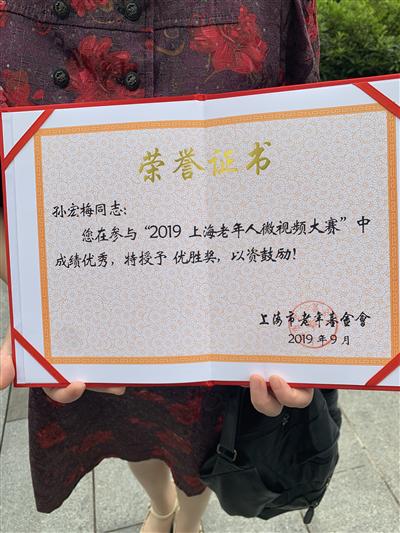 荣誉证书
孙宏梅同志：
您在参与“2019 上海老年人微视频大赛”中
成绩优秀，特授予 优胜奖，以资鼓励！
上海市老年基金會
2019 年 9 月